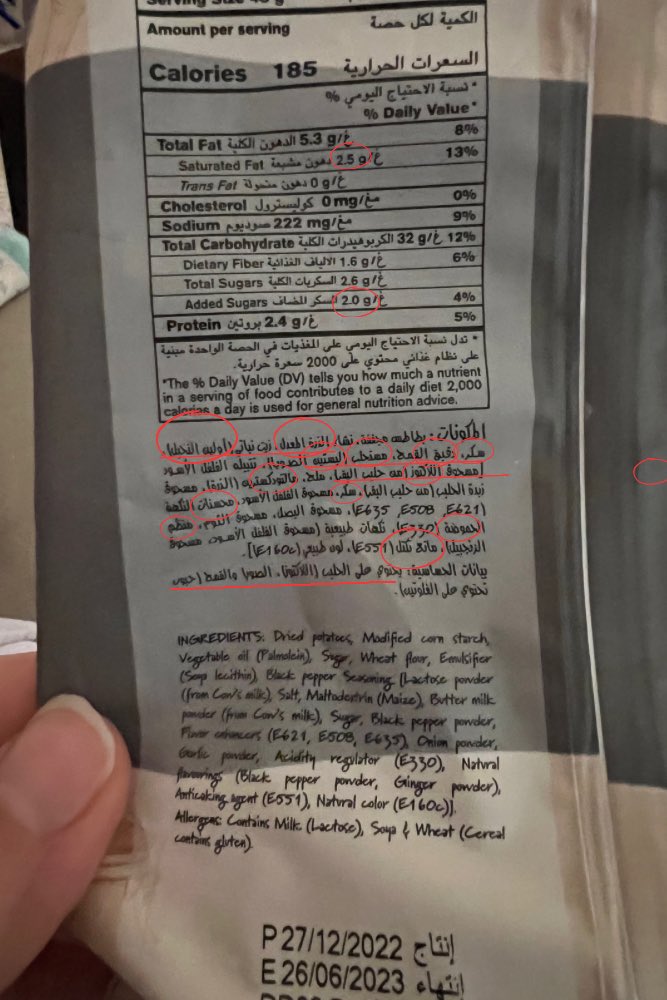 Amount per serving الكمية لكل حصة
Calories 185 السعرات الحرارية
% نسبة الاحتياج اليومي *
% Daily Value*
Total Fat الدهون الكلية 5.3 g/غ 8%
Saturated Fat دهون مشبعة 2.5 g/غ 13%
Trans Fat دهون متحولة 0 g/غ
Cholesterol كوليسترول 0 mg/مغ 0%
Sodium صوديوم 222 mg/مغ 9%
Total Carbohydrate الكربوهيدرات الكلية 32 g/غ 12%
Dietary Fiber الالياف الغذائية 1.6 g/غ 6%
Total Sugars السكريات الكلية 2.6 g/غ
Added Sugars السكر المضاف 2.0 g/غ 4%
Protein بروتين 2.4 g/غ 5%
* تدل نسبة الاحتياج اليومي على المغذيات في الحصة الواحدة مبنية
على نظام غذائي محتوي على 2000 سعرة حرارية.
*The % Daily Value (DV) tells you how much a nutrient
in a serving of food contributes to a daily diet 2,000
calories a day is used for general nutrition advice.
المكونات: بطاطس مجففة، نشا الذرة المعدل، زيت نباتي (أولين النخيل)،
سكر، دقيق القمح، مستحلب (ليسثين الصويا)، تتبيلة الفلفل الأسود
[مسحوق اللاكتوز (من حليب البقر)، ملح، مالتودكسترين (الذرة)، مسحوق
زبدة الحليب (من حليب البقر)، سكر، مسحوق الفلفل الأسود، محسنات النكهة
(E635 ,E508 ,E621)، مسحوق البصل، مسحوق الثوم، منظم
الحموضة (E330)، نكهات طبيعية (مسحوق الفلفل الأسود، مسحوق
الزنجبيل)، مانع تكتل (E551)، لون طبيعي (E160c)].
بيانات الحساسية: يحتوي على الحليب (اللاكتوز)، الصويا والقمح (حبوب
تحتوي على الغلوتين).
INGREDIENTS: Dried potatoes, Modified corn starch,
Vegetable oil (Palmolein), Sugar, Wheat flour, Emulsifier
(Soya lecithin), Black pepper Seasoning [Lactose powder
(from Cow's milk), Salt, Maltodextrin (Maize), Butter milk
powder (from Cow's milk), Sugar, Black pepper powder,
Flavor enhancers (E621, E508, E635), Onion powder,
Garlic powder, Acidity regulator (E330), Natural
flavourings (Black pepper powder, Ginger powder),
Anticaking agent (E551), Natural color (E160c)].
Allergens: Contains Milk (Lactose), Soya & Wheat (Cereal
contains gluten).
P 27/12/2022 إنتاج
E 26/06/2023 انتهاء